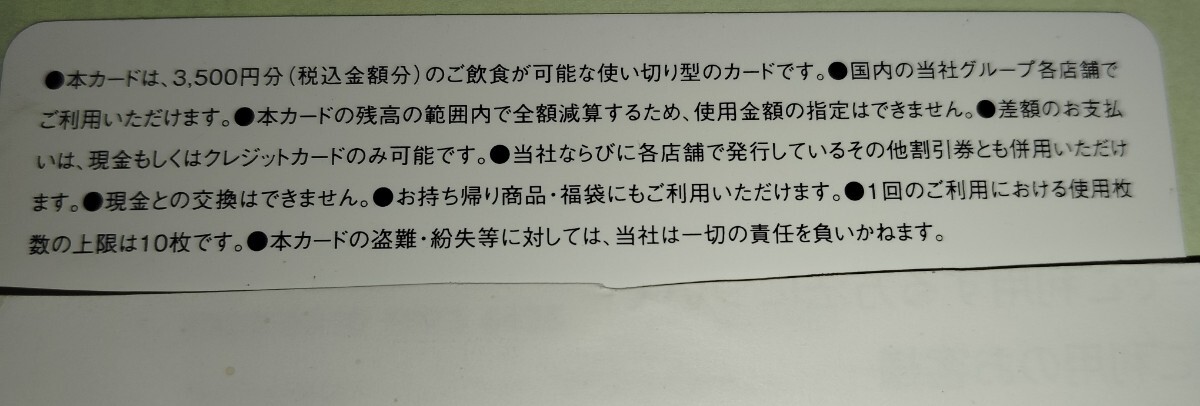 ●本カードは、3,500円分(税込金額分)のご飲食が可能な使い切り型のカードです。●国内の当社グループ各店舗で
ご利用いただけます。●本カードの残高の範囲内で全額減算するため、使用金額の指定はできません。●差額のお支払
いは、現金もしくはクレジットカードのみ可能です。●当社ならびに各店舗で発行しているその他割引券とも併用いただけ
ます。●現金との交換はできません。●お持ち帰り商品・福袋にもご利用いただけます。●1回のご利用における使用枚
数の上限は10枚です。●本カードの盗難・紛失等に対しては、当社は一切の責任を負いかねます。